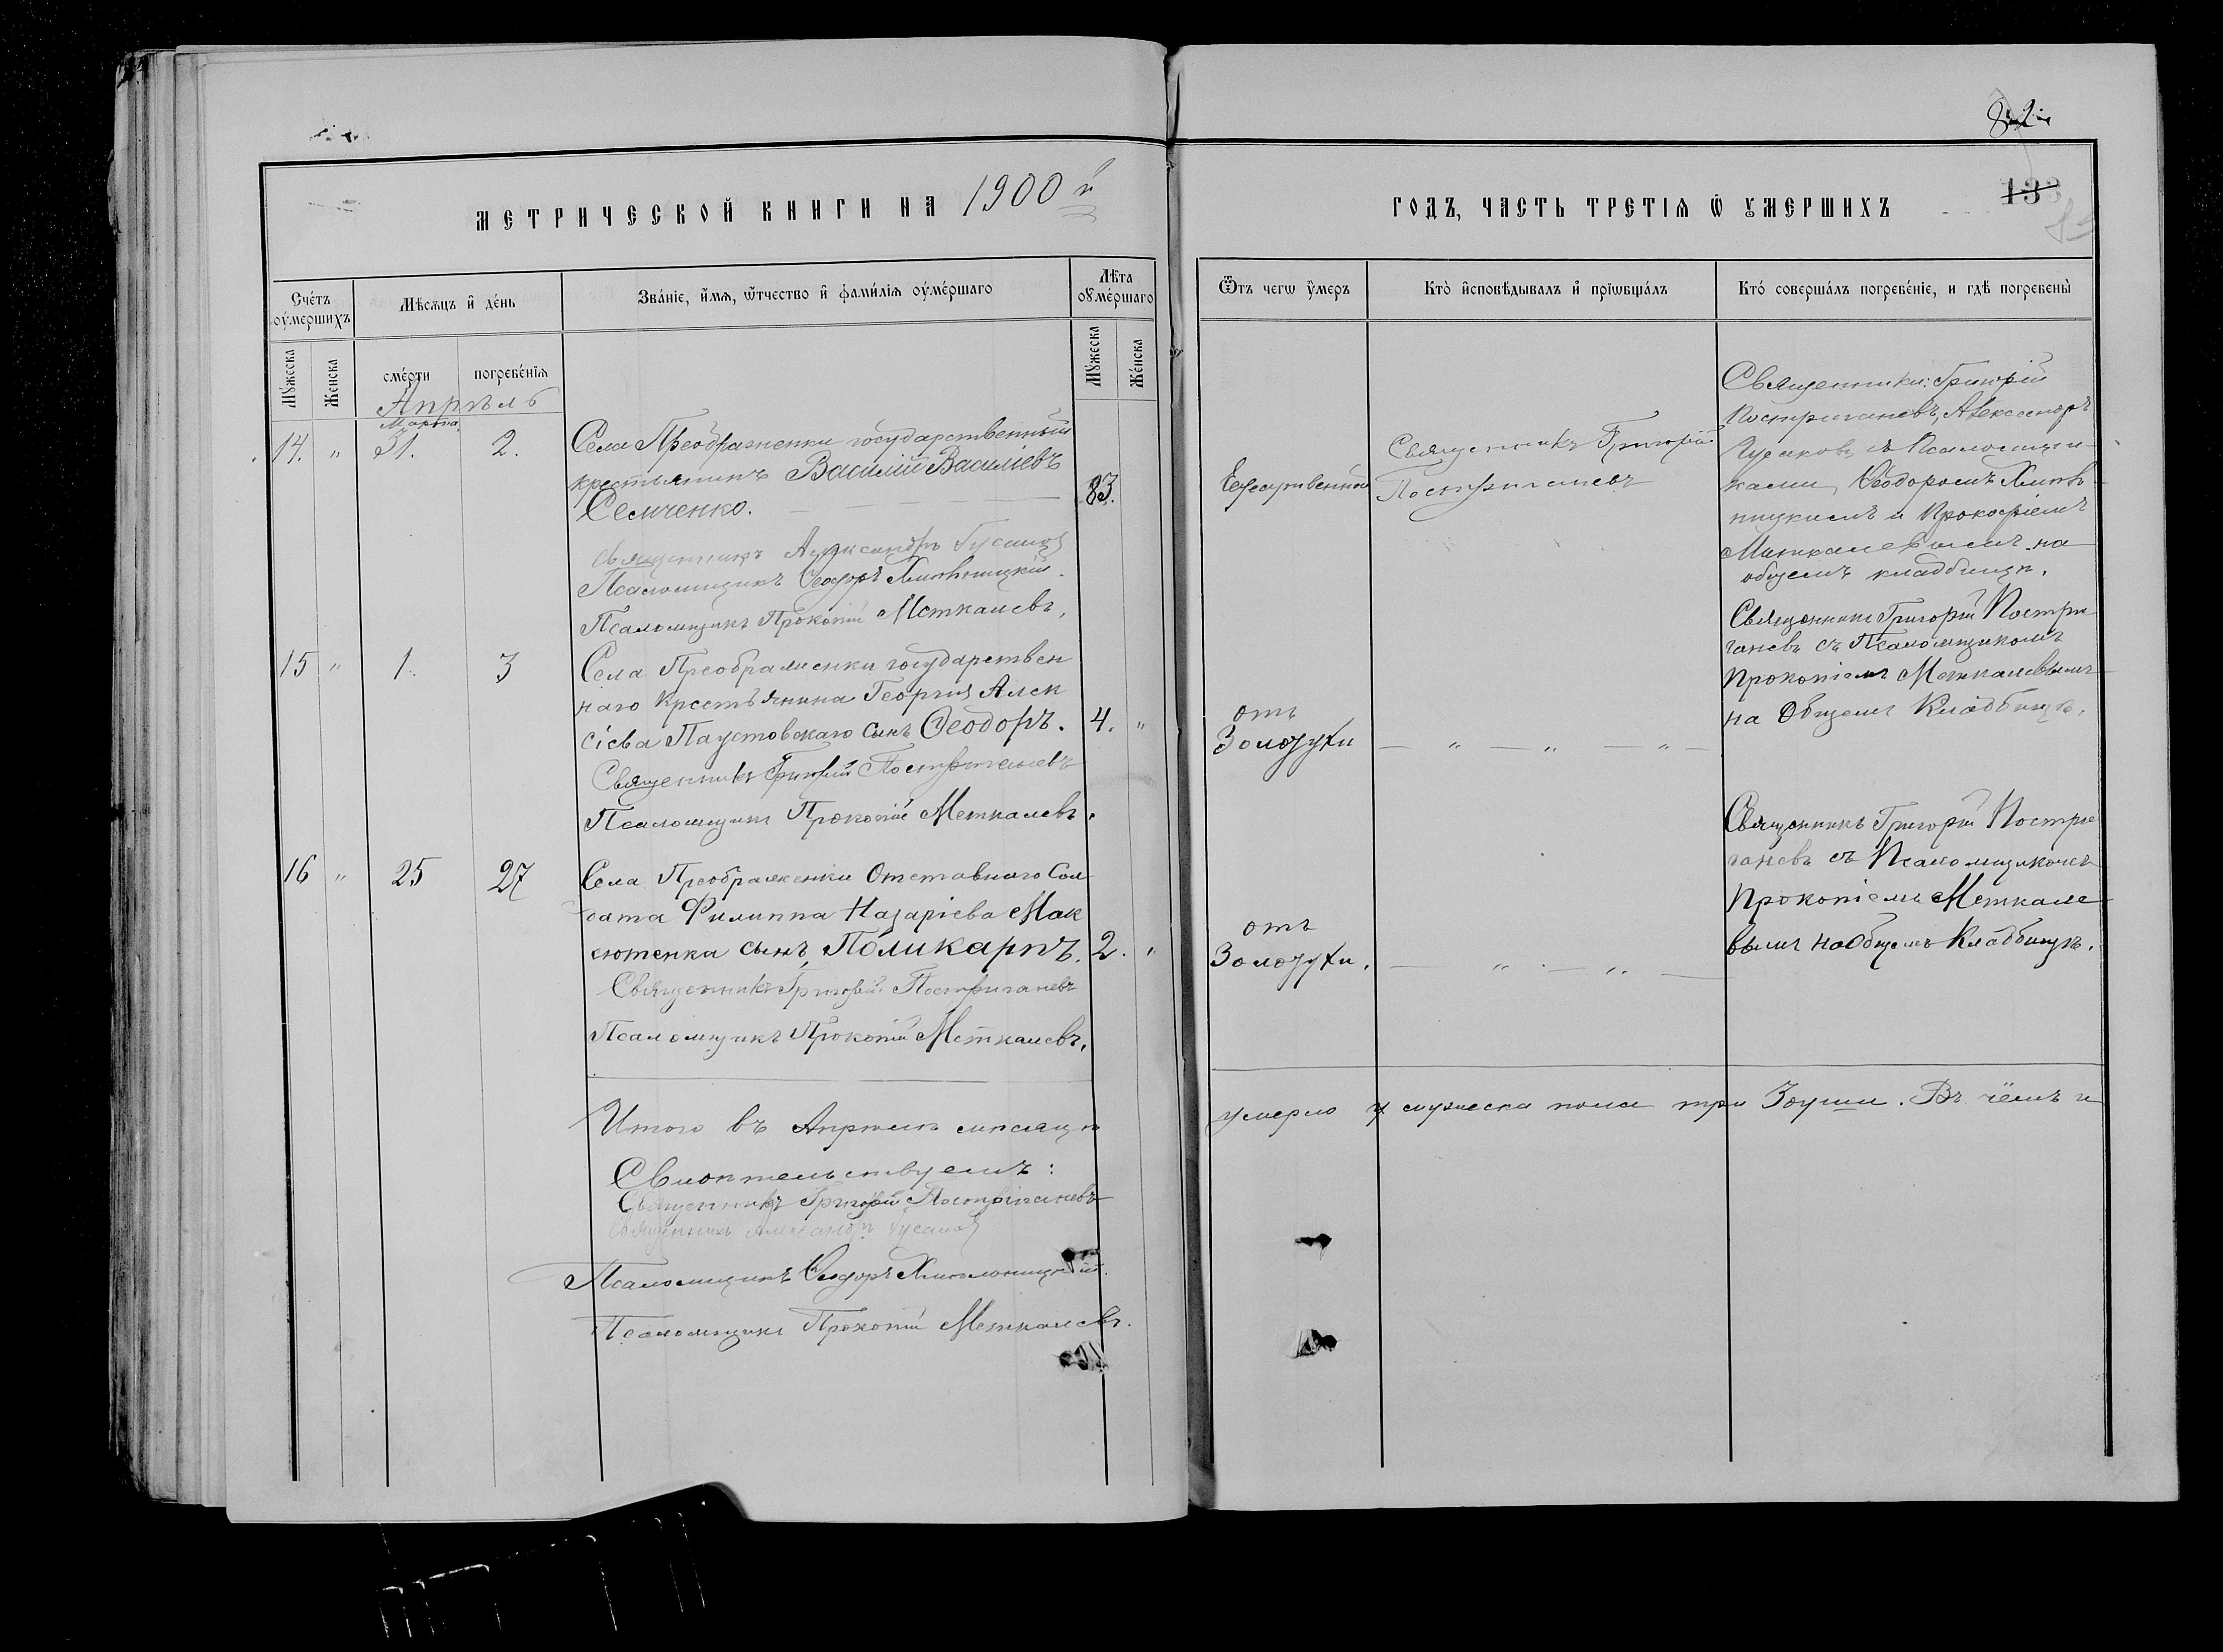 82
МЕТРИЧЕСКОЙ КНИГИ НА 1900 й
ГОДЪ, ЧАСТЬ ТРЕТІѦ Ѿ ОУМЕРШИХЪ
133
Сче́тъ оу́мершихъ
Мѣсѧцъ и҆ де́нь
Зва́нїе, и҆́мѧ, ѿтчество и҆ фами́лїѧ оу́ме́ршагѡ
Лѣ́та оу҆ме́ршаго
Ѿтъ чегѡ ᲂу҆́меръ
Кто̀ и҆сповѣ́дывалъ и҆ прїѡбща́лъ
Кто́ соверша́лъ погребе́нїе, и гдѣ̀ погребены̀
Мꙋ́жеска
Же́нска
сме́рти
погребе́нїѧ
Мꙋ́жеска
Же́нска
Апрѣль
Марта
14. " 31. 2.
Села Преображенки государственный
крестьянинъ Василій Васильевъ
Семченко.
83.
Священникъ Александръ Гусаковъ
Псаломщикъ Ѳеодоръ
Псаломщикъ Прокопій Меткалевъ.
Священникъ Григорій
Постригачевъ
Священники: Григорій
Постригачевъ, Александръ
Гусаковъ съ Псаломщи-
ками, Ѳеодоромъ
и Прокофіемъ
Меткалевымъ на
общемъ кладбищѣ.
15 " 1. 3
Села Преображенки государствен
наго крестьянина Георгія Алек
сіева Паустовскаго сынъ Ѳеодоръ.
4. "
Священникъ Григорій Постригачевъ
Псаломщикъ Прокопій Меткалевъ.
отъ
Золотухи
— " — " — " —
Священникъ Григорій Постри
гачевъ съ Псаломщикомъ
Прокопіемъ Меткалевымъ
на Общемъ Кладбищѣ.
16 " 25 27
Села Преображенки Отставного Сол
дата Филиппа Назаріева Мак
сютенка сынъ, Поликарпъ.
2. "
Священникъ Григорій Постригачевъ
Псаломщикъ Прокопій Меткалевъ.
отъ
Золотухи.
— " — " —
Священникъ Григорій Постри
гачевъ съ Псаломщикомъ
Прокопіемъ Меткале
вымъ на Общемъ Кладбищѣ.
Итого въ Апрѣлѣ мѣсяцѣ умерло мужеска пола три души. Въ чемъ и
Свидѣтельствуемъ:
Священникъ Григорій Постригачевъ
Священникъ Александръ Гусаковъ
Псаломщикъ Ѳеодоръ
Псаломщикъ Прокопій Меткалевъ.